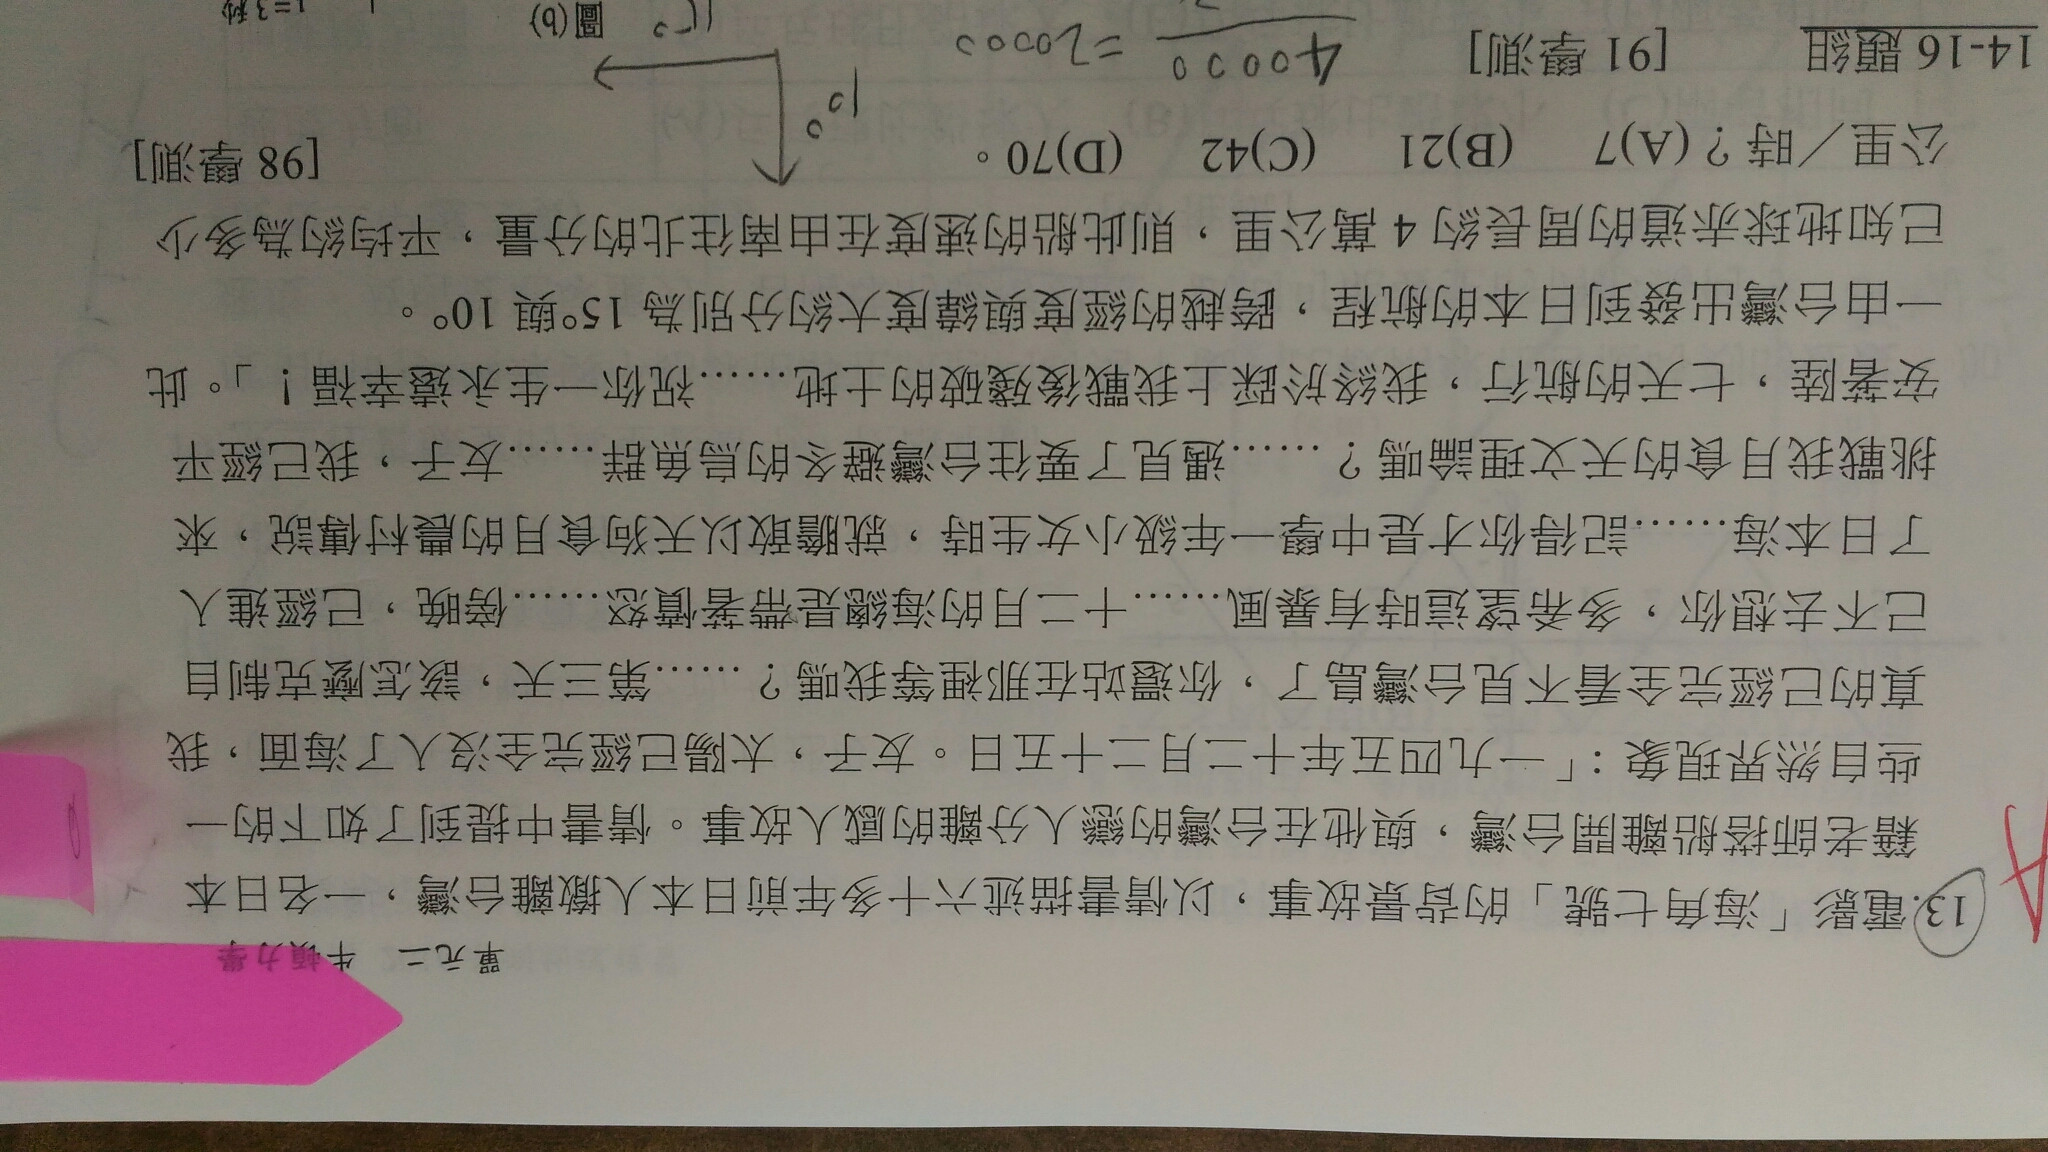 單元二 牛頓力學
13.電影「海角七號」的背景故事，以情書描述六十多年前日本人撤離台灣，一名日本
籍老師搭船離開台灣，與他在台灣的戀人分離的感人故事。情書中提到了如下的一
些自然界現象：「一九四五年十二月二十五日。友子，太陽已經完全沒入了海面，我
真的已經完全看不見台灣島了，你還站在那裡等我嗎？……第三天，該怎麼克制自
己不去想你，多希望這時有暴風……十二月的海總是帶著憤怒……傍晚，已經進入
了日本海……記得你才是中學一年級小女生時，就膽敢以天狗食月的農村傳說，來
挑戰我月食的天文理論嗎？……遇見了要往台灣避冬的烏魚群……友子，我已經平
安著陸，七天的航行，我終於踩上我戰後殘破的土地……祝你一生永遠幸福！」。此
一由台灣出發到日本的航程，跨越的經度與緯度大約分別為 15°與 10°。
已知地球赤道的周長約 4 萬公里，則此船的速度在由南往北的分量，平均約為多少
公里／時？(A)7 (B)21 (C)42 (D)70。 [98 學測]
10°
15°
40000 = 20000
14-16 題組 [91 學測]
圖(b)
t=3秒